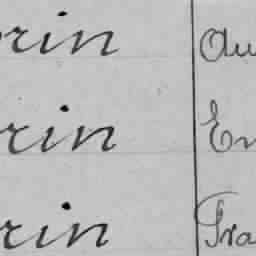 rin Au
rin En
rin Fra